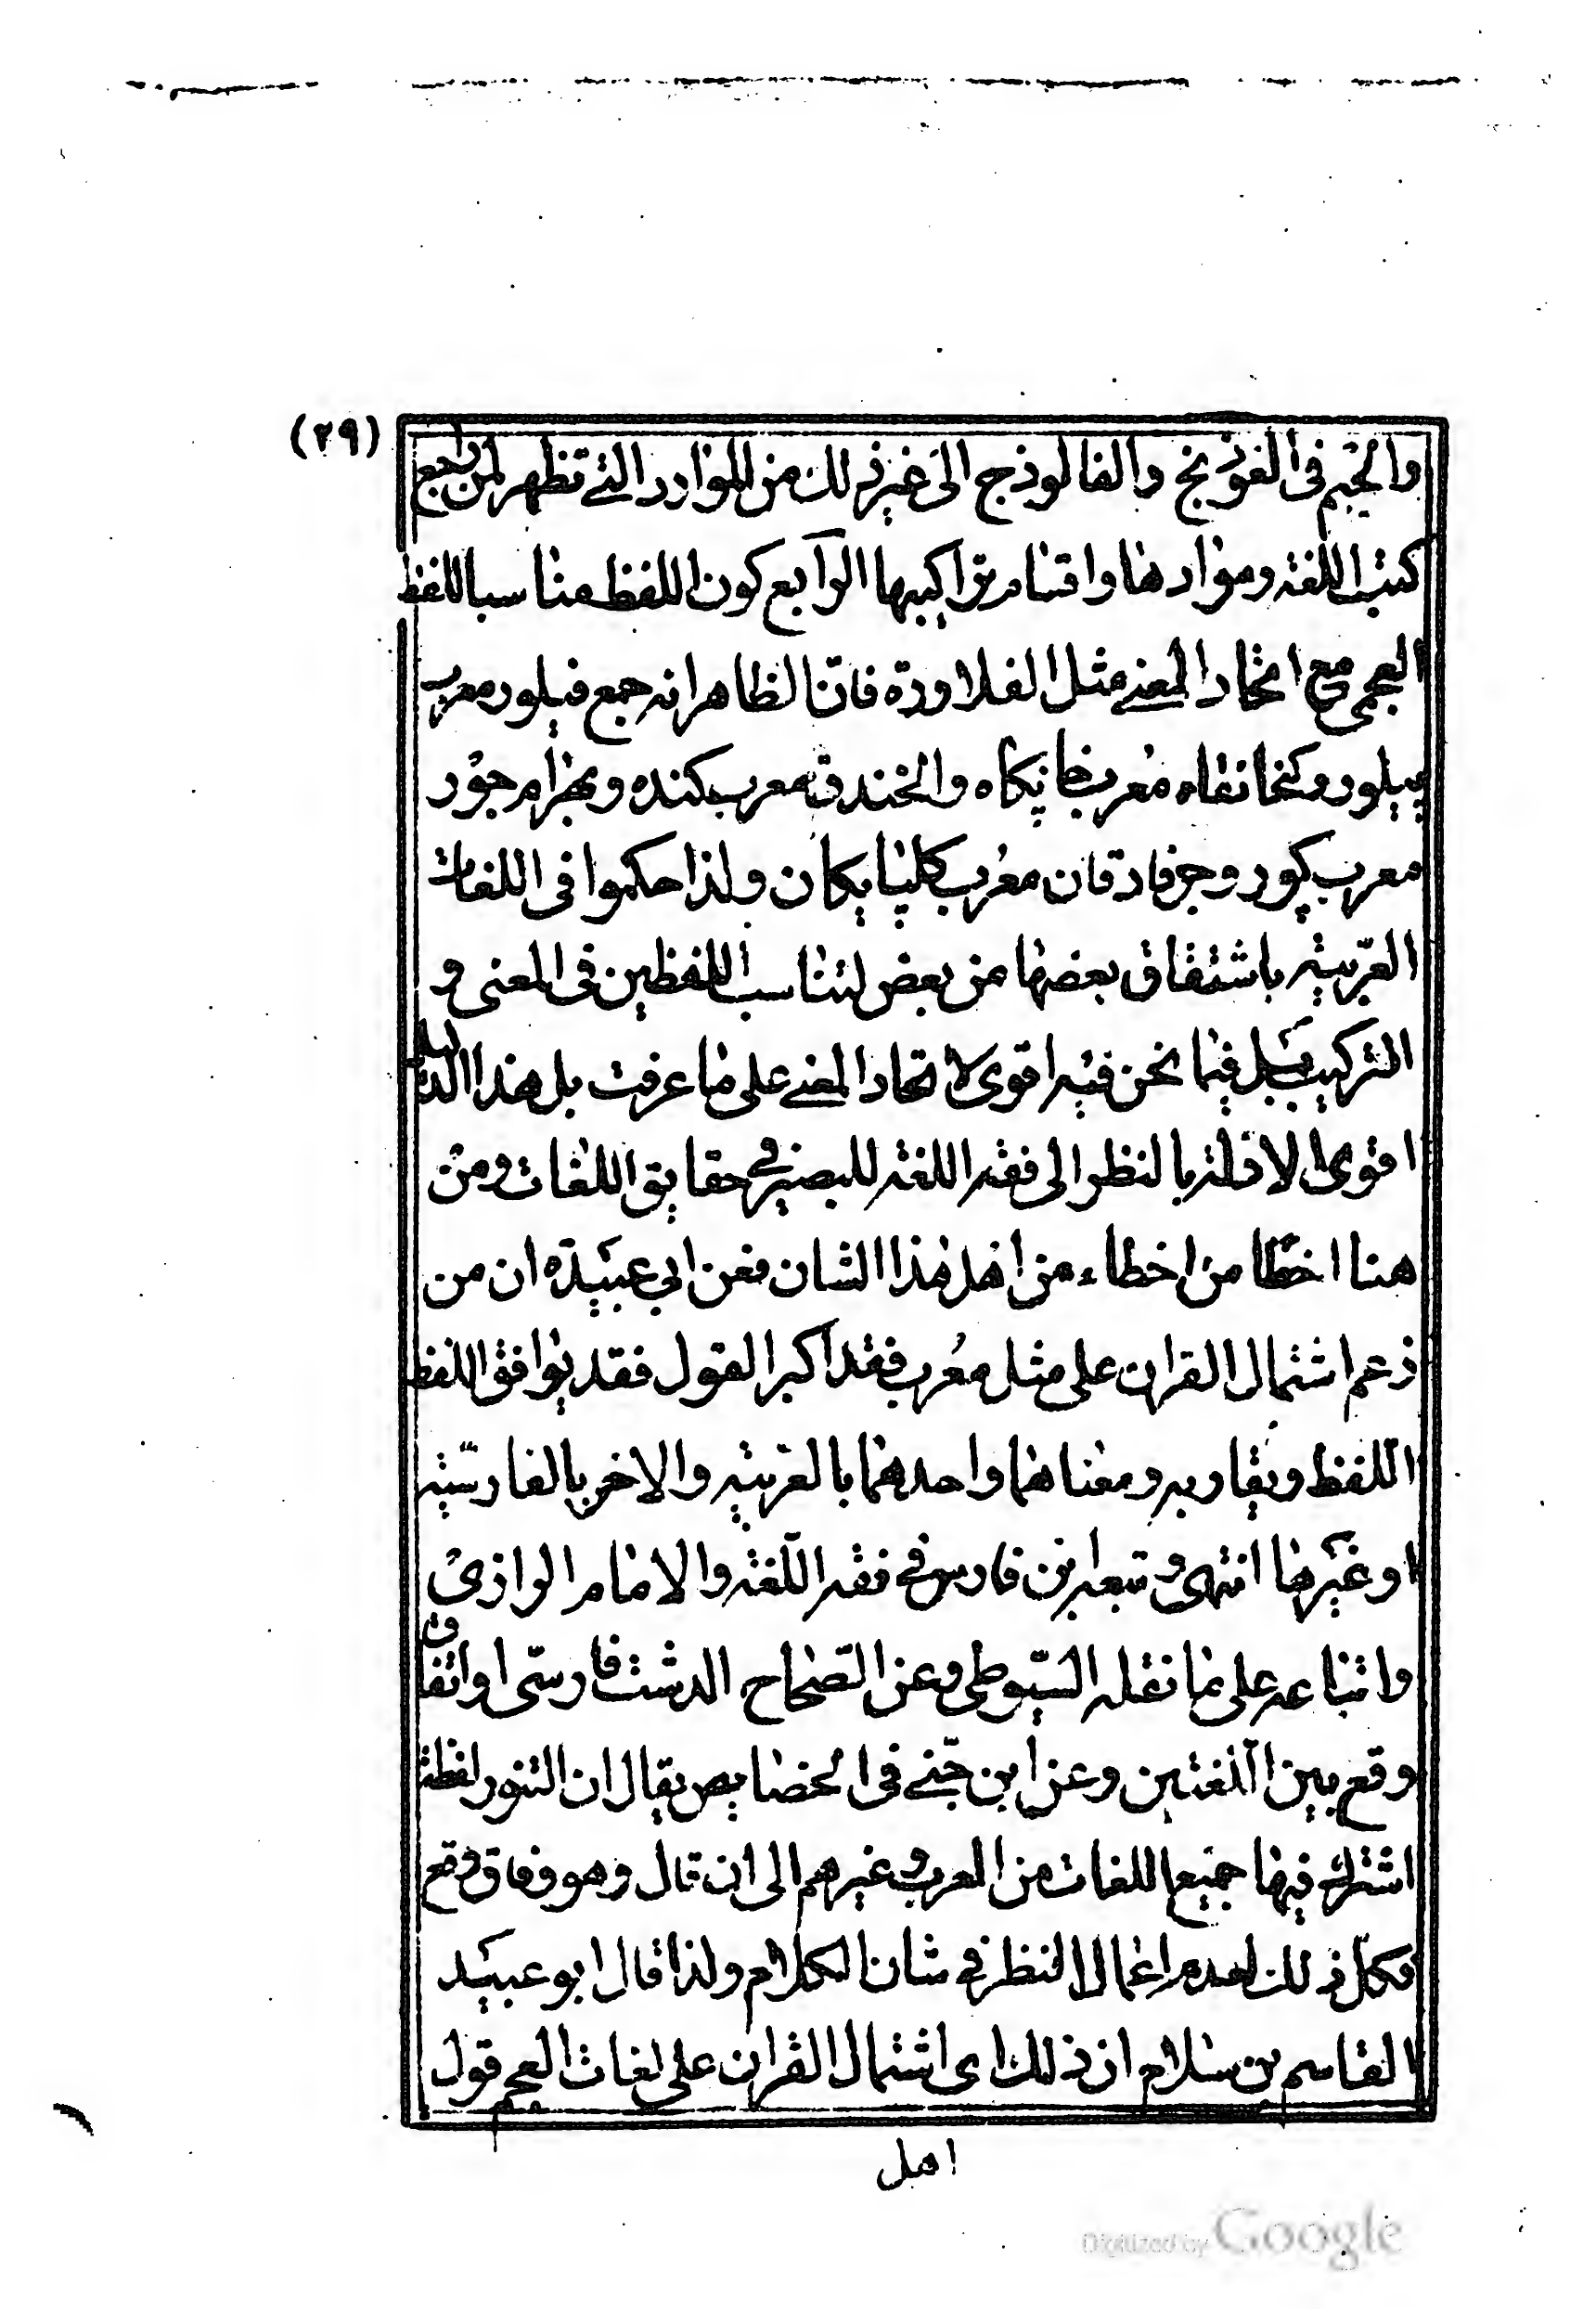 (٢٩)
والجيم فى الفوذنج والفالوذج الى غير ذلك من الموارد التے تظهر لمن راجع
كتب اللغة ومواردها واقسام تراكيبها الرابع كون اللفظ مناسبا للفظ
العجمى مع اتحاد المعنے مثل الفلاورة فان الظاهر انه جمع فيلور معرب
پيلور وكخانقاه معرب خانكاه والخندق معرب كنده وبهرام جور
معرب گور وجرفادقان معرب كلپايكان ولذا حكموا فى اللغات
العربية باشتقاق بعضها من بعض لتناسب اللفظين فى المعنى و
التركيب بل فيما نحن فيه اقوى لاتحاد المعنے على ما عرفت بل هذا الدليل
اقوى الادلة بالنظر الى فقه اللغة للبصير فے حقايق اللغات ومن
هنا اخطا من اخطاء من اهل هذا الشان فعن ابي عبيدة ان من
زعم اشتمال القران على مثل معرب فقد اكبر القول فقد يوافق اللفظ
اللفظ ويقاربه ومعناهما واحدهما بالعربية والاخر بالفارسية
او غيرها انتهى وتبعه ابن فارس فے فقه اللغة والامام الرازى
واتباعه على ما نقله السيوطى وعن الصحاح الدشت فارسى او اتفاق
وقع بين اللغتين وعن ابن جنے فى الخصايص يقال ان التنور لفظة
اشترك فيها جميع اللغات من العرب وغيرهم الى ان قال وهو وفاق وقع
فكل ذلك لعدم اعمال النظر فے شان الكلام ولذا قال ابو عبيد
القاسم بن سلام ان ذلك اى اشتمال القران على لغات العجم قول
اهل
Digitized by Google